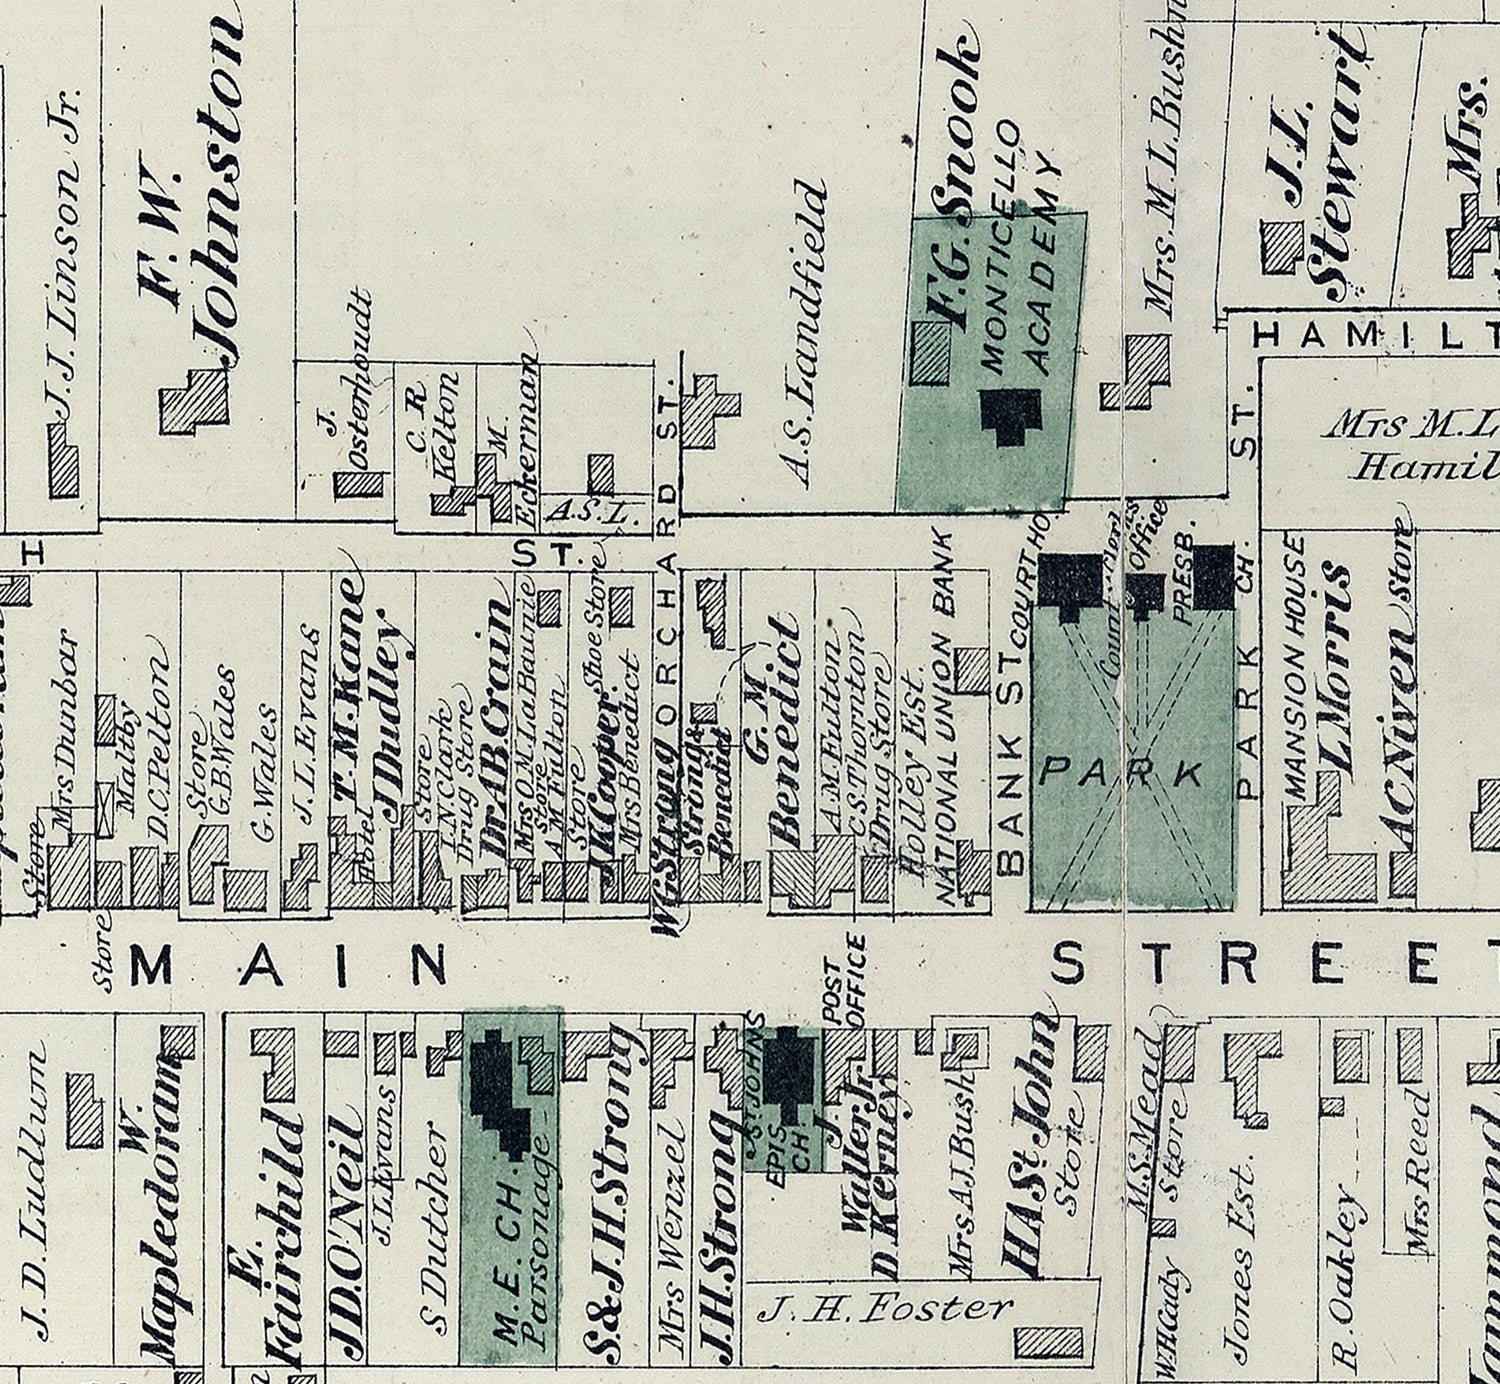 J. J. Linson Jr.
F. W.
Johnston
J.
Ostenhoudt
C. R
Kelton
M.
Eckerman
A.S.L.
ORCHARD ST.
A. S. Landfield
F.G. Snook
MONTICELLO
ACADEMY
Mrs. M. L. Bushn
J. L.
Stewart
Mrs.
HAMILT
Mrs M. L
Hamil
H
ST.
Store
Mrs Dunbar
Maltby
D.C. Pelton
Store
G.B. Wales
G. Wales
J. L. Evans
T. M. Kane
Hotel
J Dudley
Store
I. N. Clark
Drug Store
Dr A.B. Crain
Mrs O.M. LaBaunie
Store
A M Fulton
Store
J K Cooper
Shoe Store
Mrs Benedict
W G Strong
Strong &
Benedict
G. M
Benedict
A. M. Fulton
C. S. Thornton
Drug Store
Holley Est.
NATIONAL UNION BANK
BANK ST.
COURT HO.
County Clerk's
Office
PRESB.
CH.
PARK
PARK ST.
MANSION HOUSE
L Morris
A C Niven
Store
Store
MAIN STREET
J. D. Ludlum
W.
Mapledoram
E.
Fairchild
J.D. O'Neil
J. L. Evans
S Dutcher
M. E. CH.
Parsonage
S. & J. H. Strong
Mrs Wenzel
J. H. Strong
ST JOHNS
EPIS
CH.
POST
OFFICE
J.
Waller Jr
D Kerney
Mrs A J. Bush
H A St. John
Store
J. H. Foster
M. S. Mead
Store
W H Cady
Jones Est.
R. Oakley
Mrs Reed